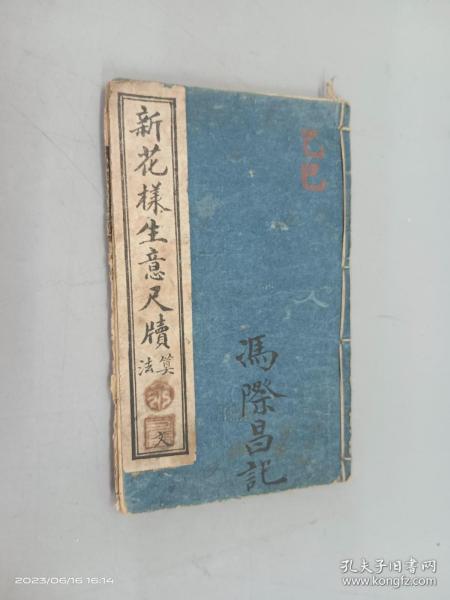 新花樣生意尺牘
算法
文
乙巳
馮際昌記
2023/06/16 16:14
孔夫子旧书网
www.kongfz.com